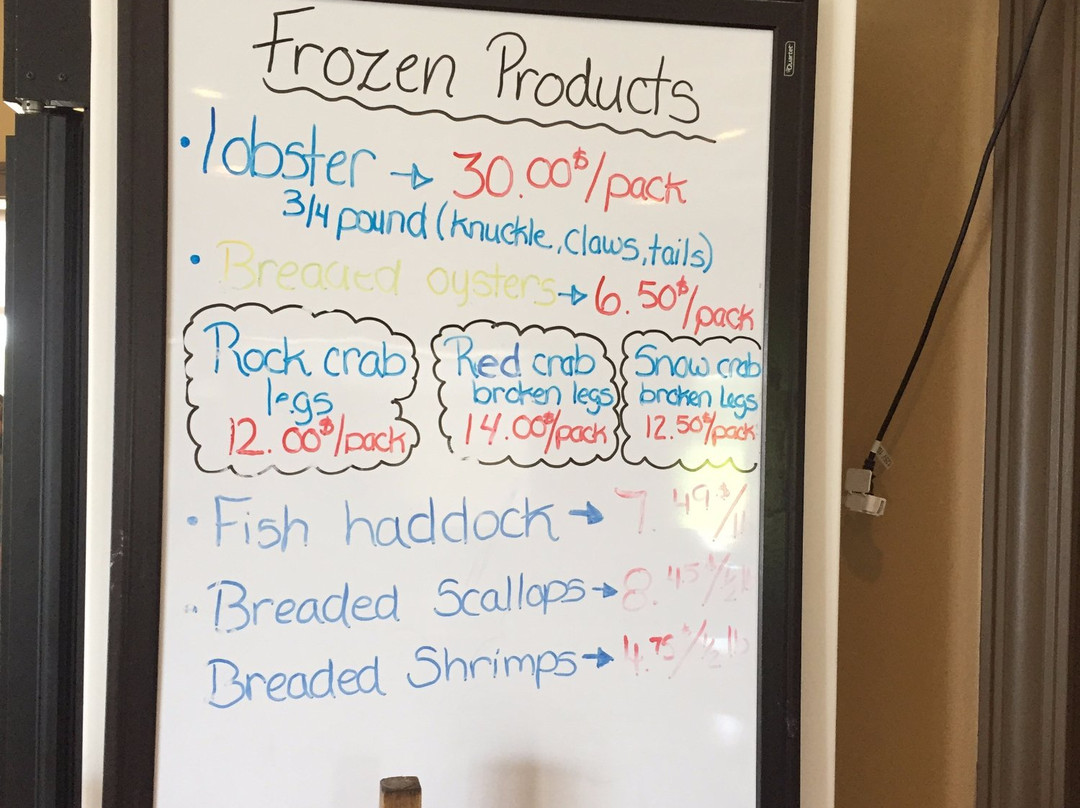 Frozen Products
• lobster → 30.00$/pack
3/4 pound (knuckle, claws, tails)
• Breaded oysters → 6.50$/pack
Rock crab
legs
12.00$/pack
Red crab
broken legs
14.00$/pack
Snow crab
broken legs
12.50$/pack
• Fish haddock → 7.49$/
• Breaded Scallops → 8.45$/½
Breaded Shrimps → 4.75/½ lb
Quartet